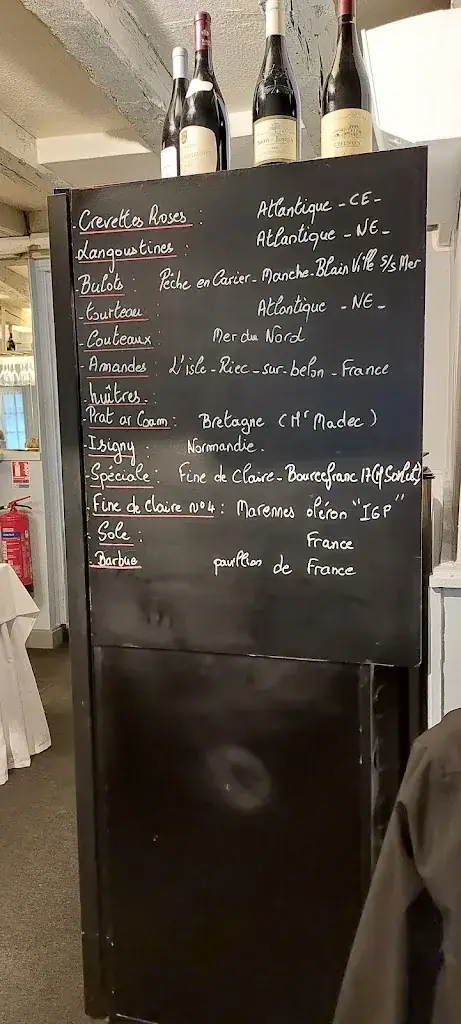 Crevettes Roses : Atlantique - CE -
Langoustines : Atlantique - NE -
Bulots : Pêche en Casier - Manche - BlainVille s/s Mer
- tourteau : Atlantique - NE -
- Couteaux : Mer du Nord
- Amandes : L'isle - Riec - sur - belon - France
- huîtres - :
- Prat ar Coam : Bretagne (Mr Madec)
- Isigny : Normandie.
- Spéciale : Fine de Claire - Bourcefranc 17
- Fine de Claire n°4 : Marennes oléron "IGP"
- Sole : France
- Barbue pavillion de France